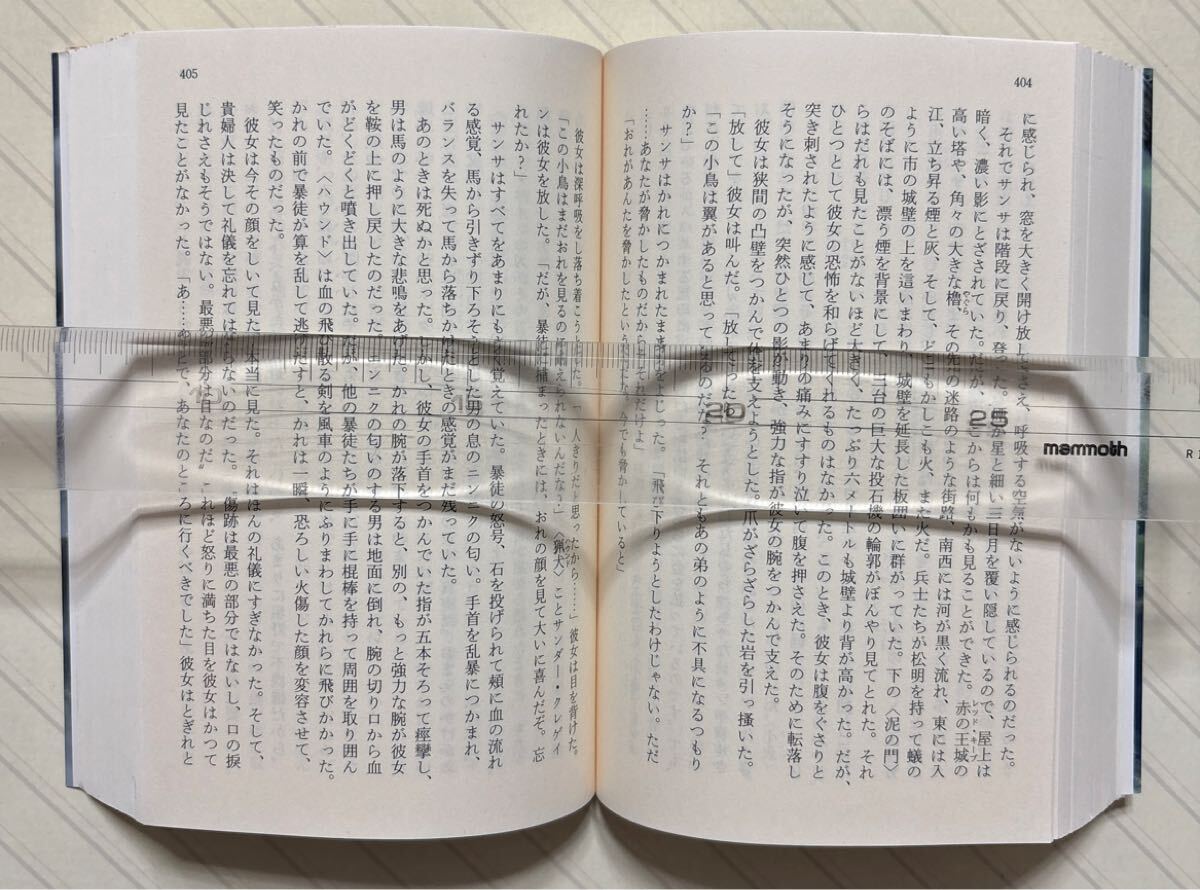 404
に感じられ、窓を大きく開け放してさえ、呼吸する空気がないように感じられるのだった。
それでサンサは階段に戻り、登った。
が星と細い三日月を覆い隠しているので、屋上は
暗く、濃い影にとざされていた。だが、ここからは何もかも見ることができた。赤の王城の
レッド・キープ
高い塔や、角々の大きな櫓、その先の迷路のような街路、南西には河が黒く流れ、東には入
やぐら
江、立ち昇る煙と灰、そして、どこもかしこも火、また火だ。兵士たちが松明を持って蟻の
ように市の城壁の上を這いまわり、城壁を延長した板囲いに群がっていた。下の〈泥の門〉
のそばには、漂う煙を背景にして、三台の巨大な投石機の輪郭がぼんやり見てとれた。それ
らはだれも見たことがないほど大きく、たっぷり六メートルも城壁より背が高かった。だが、
ひとつとして彼女の恐怖を和らげてくれるものはなかった。このとき、彼女は腹をぐさりと
突き刺されたように感じて、あまりの痛みにすすり泣いて腹を押さえた。そのために転落し
そうになったが、突然ひとつの影が動き、強力な指が彼女の腕をつかんで支えた。
彼女は狭間の凸壁をつかんで体を支えようとした。爪がざらざらした岩を引っ掻いた。
「放して」彼女は叫んだ。「放してったら」
「この小鳥は翼があると思っているのだな？　それともあの弟のように不具になるつもり
か？」
サンサはかれにつかまれたまま身をよじった。「飛び下りようとしたわけじゃない。ただ
……あなたが脅かしたものだから、それだけよ」
「おれがあんたを脅かしたというんだな。今でも脅かしていると」
405
彼女は深呼吸をし落ち着こうとした。「一人きりだと思ったから……」彼女は目を背けた。
「この小鳥はまだおれを見るのに耐えられないんだな？」〈猟犬〉ことサンダー・クレゲイ
ハウンド
ンは彼女を放した。「だが、暴徒に捕まったときには、おれの顔を見て大いに喜んだぞ。忘
れたか？」
サンサはすべてをあまりにもよく覚えていた。暴徒の怒号、石を投げられて頰に血の流れ
る感覚、馬から引きずり下ろそうとした男の息のニンニクの匂い。手首を乱暴につかまれ、
バランスを失って馬から落ちかけたときの感覚がまだ残っていた。
あのときは死ぬかと思った。しかし、彼女の手首をつかんでいた指が五本そろって痙攣し、
男は馬のように大きな悲鳴をあげた。かれの腕が落下すると、別の、もっと強力な腕が彼女
を鞍の上に押し戻したのだった。ニンニクの匂いのする男は地面に倒れ、腕の切り口から血
がどくどくと噴き出していた。だが、他の暴徒たちが手に手に棍棒を持って周囲を取り囲ん
でいた。〈ハウンド〉は血の飛び散る剣を風車のようにふりまわしてかれらに飛びかかった。
かれの前で暴徒が算を乱して逃げだすと、かれは一瞬、恐ろしい火傷した顔を変容させて、
笑ったものだった。
彼女は今その顔をしいて見た。本当に見た。それはほんの礼儀にすぎなかった。そして、
貴婦人は決して礼儀を忘れてはならないのだった。
傷跡は最悪の部分ではないし、口の捩
じれさえもそうではない。最悪の部分は目なのだ。これほど怒りに満ちた目を彼女はかつて
見たことがなかった。「あ……あとで、あなたのところに行くべきでした」彼女はとぎれと
20
25
mammoth